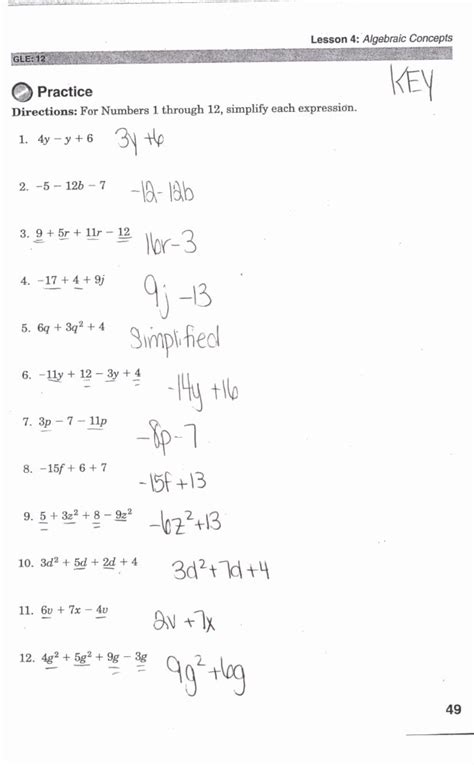 Lesson 4: Algebraic Concepts
GLE: 12
KEY
Practice
Directions: For Numbers 1 through 12, simplify each expression.
1. 4y − y + 6 3y +6
2. −5 − 12b − 7 -12-12b
3. 9 + 5r + 11r − 12 16r-3
4. −17 + 4 + 9j 9j -13
5. 6q + 3q² + 4 Simplified
6. −11y + 12 − 3y + 4 -14y +16
7. 3p − 7 − 11p -8p-7
8. −15f + 6 + 7 -15f +13
9. 5 + 3z² + 8 − 9z² -6z²+13
10. 3d² + 5d + 2d + 4 3d²+7d+4
11. 6v + 7x − 4v 2v +7x
12. 4g² + 5g² + 9g − 3g 9g²+6g
49